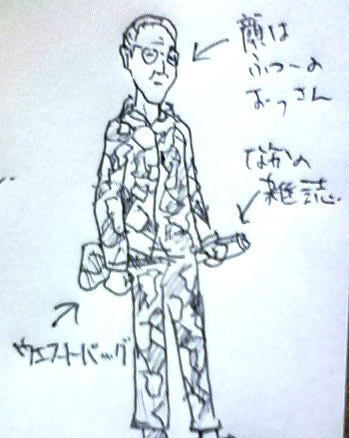 顔は
ふつーの
おっさん
なぞの
雑誌
ウエストバッグ